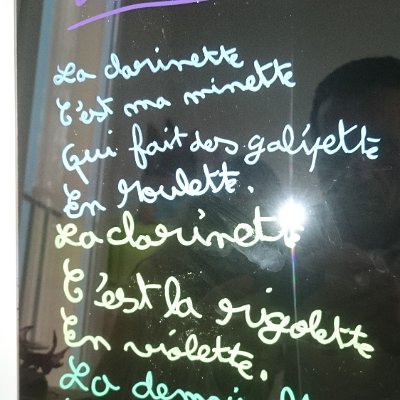 La clarinette
C'est ma minette
Qui fait des galipette
En roulette.
La clarinette
C'est la rigolette
En violette.
La